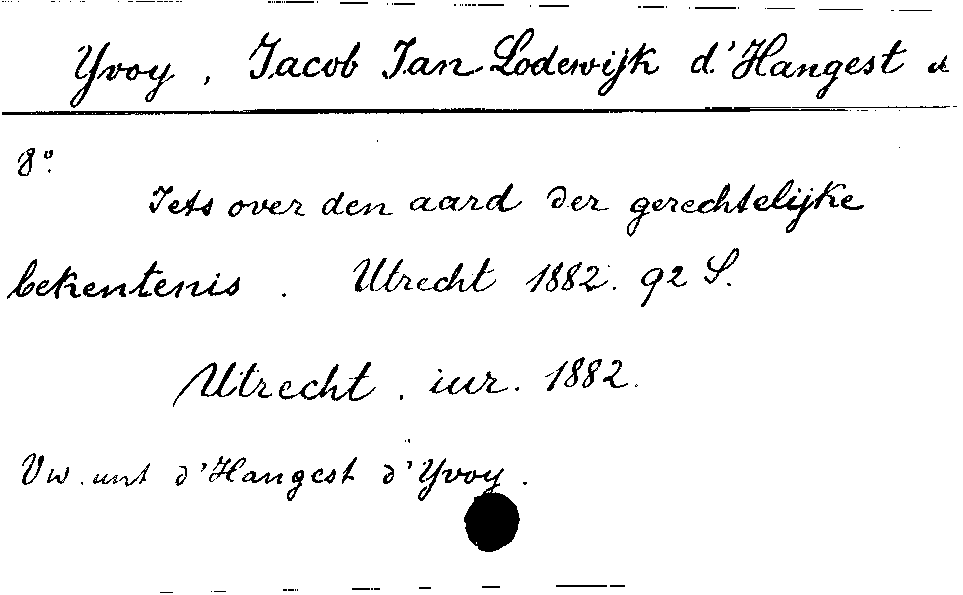 Yvoy, Jacob Jan Lodewijk d'Hangest d'
8°.
Iets over den aard der gerechtelijke
bekentenis. Utrecht 1882. 92 S.
Utrecht. iur. 1882.
Vw. unt d'Hangest d'Yvoy.